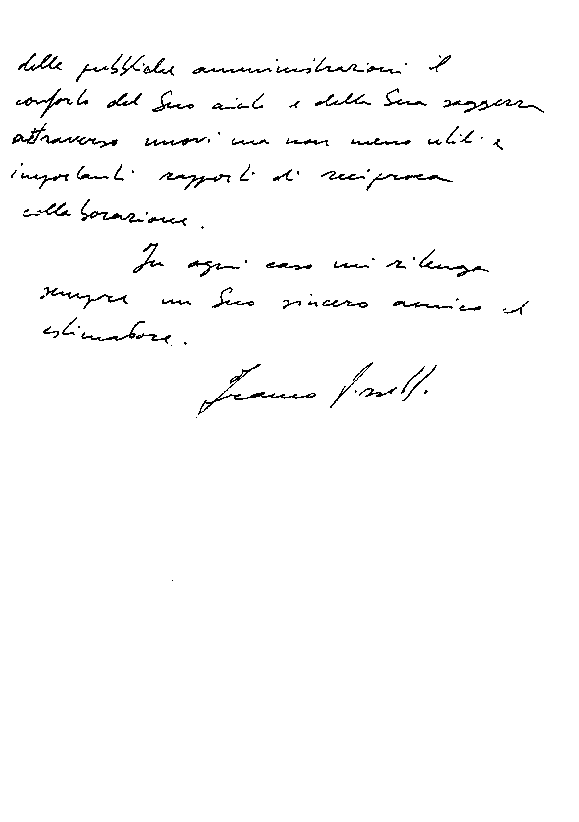 delle pubbliche amministrazioni il
conforto del Suo aiuto e della Sua saggezza
attraverso nuovi ma non meno utili e
importanti rapporti di reciproca
collaborazione.
In ogni caso mi ritenga
sempre un Suo sincero amico ed
estimatore.
Franco